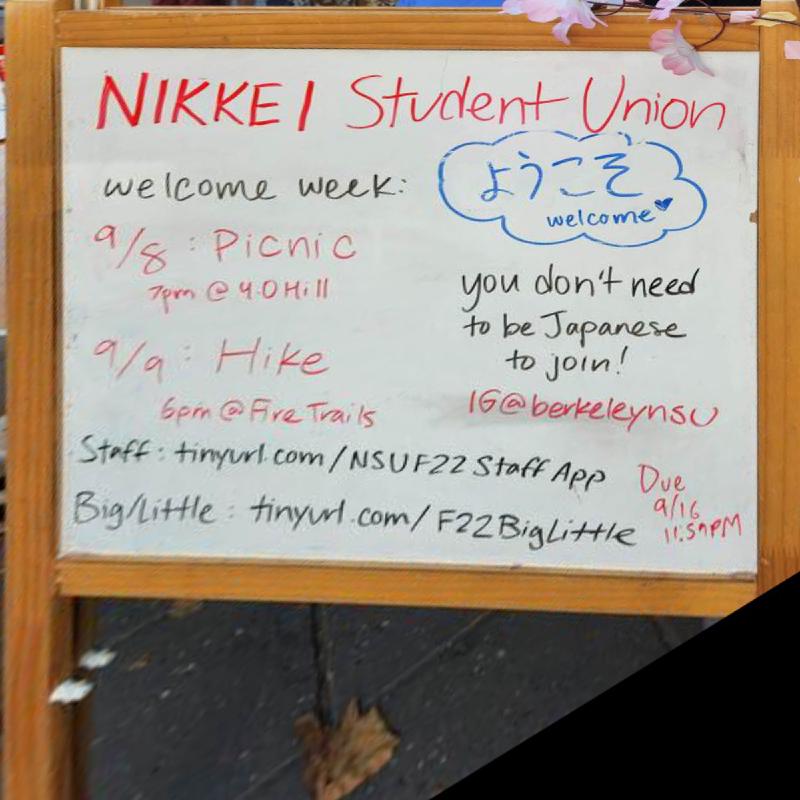 NIKKEI Student Union
welcome week:
ようこそ
welcome
9/8 : Picnic
7pm @ 4.0 Hill
9/9 : Hike
6pm @ Fire Trails
you don't need
to be Japanese
to join!
IG@berkeleynsu
Staff : tinyurl.com/NSUF22StaffApp
Big/Little : tinyurl.com/F22BigLittle
Due
9/16
11:59PM